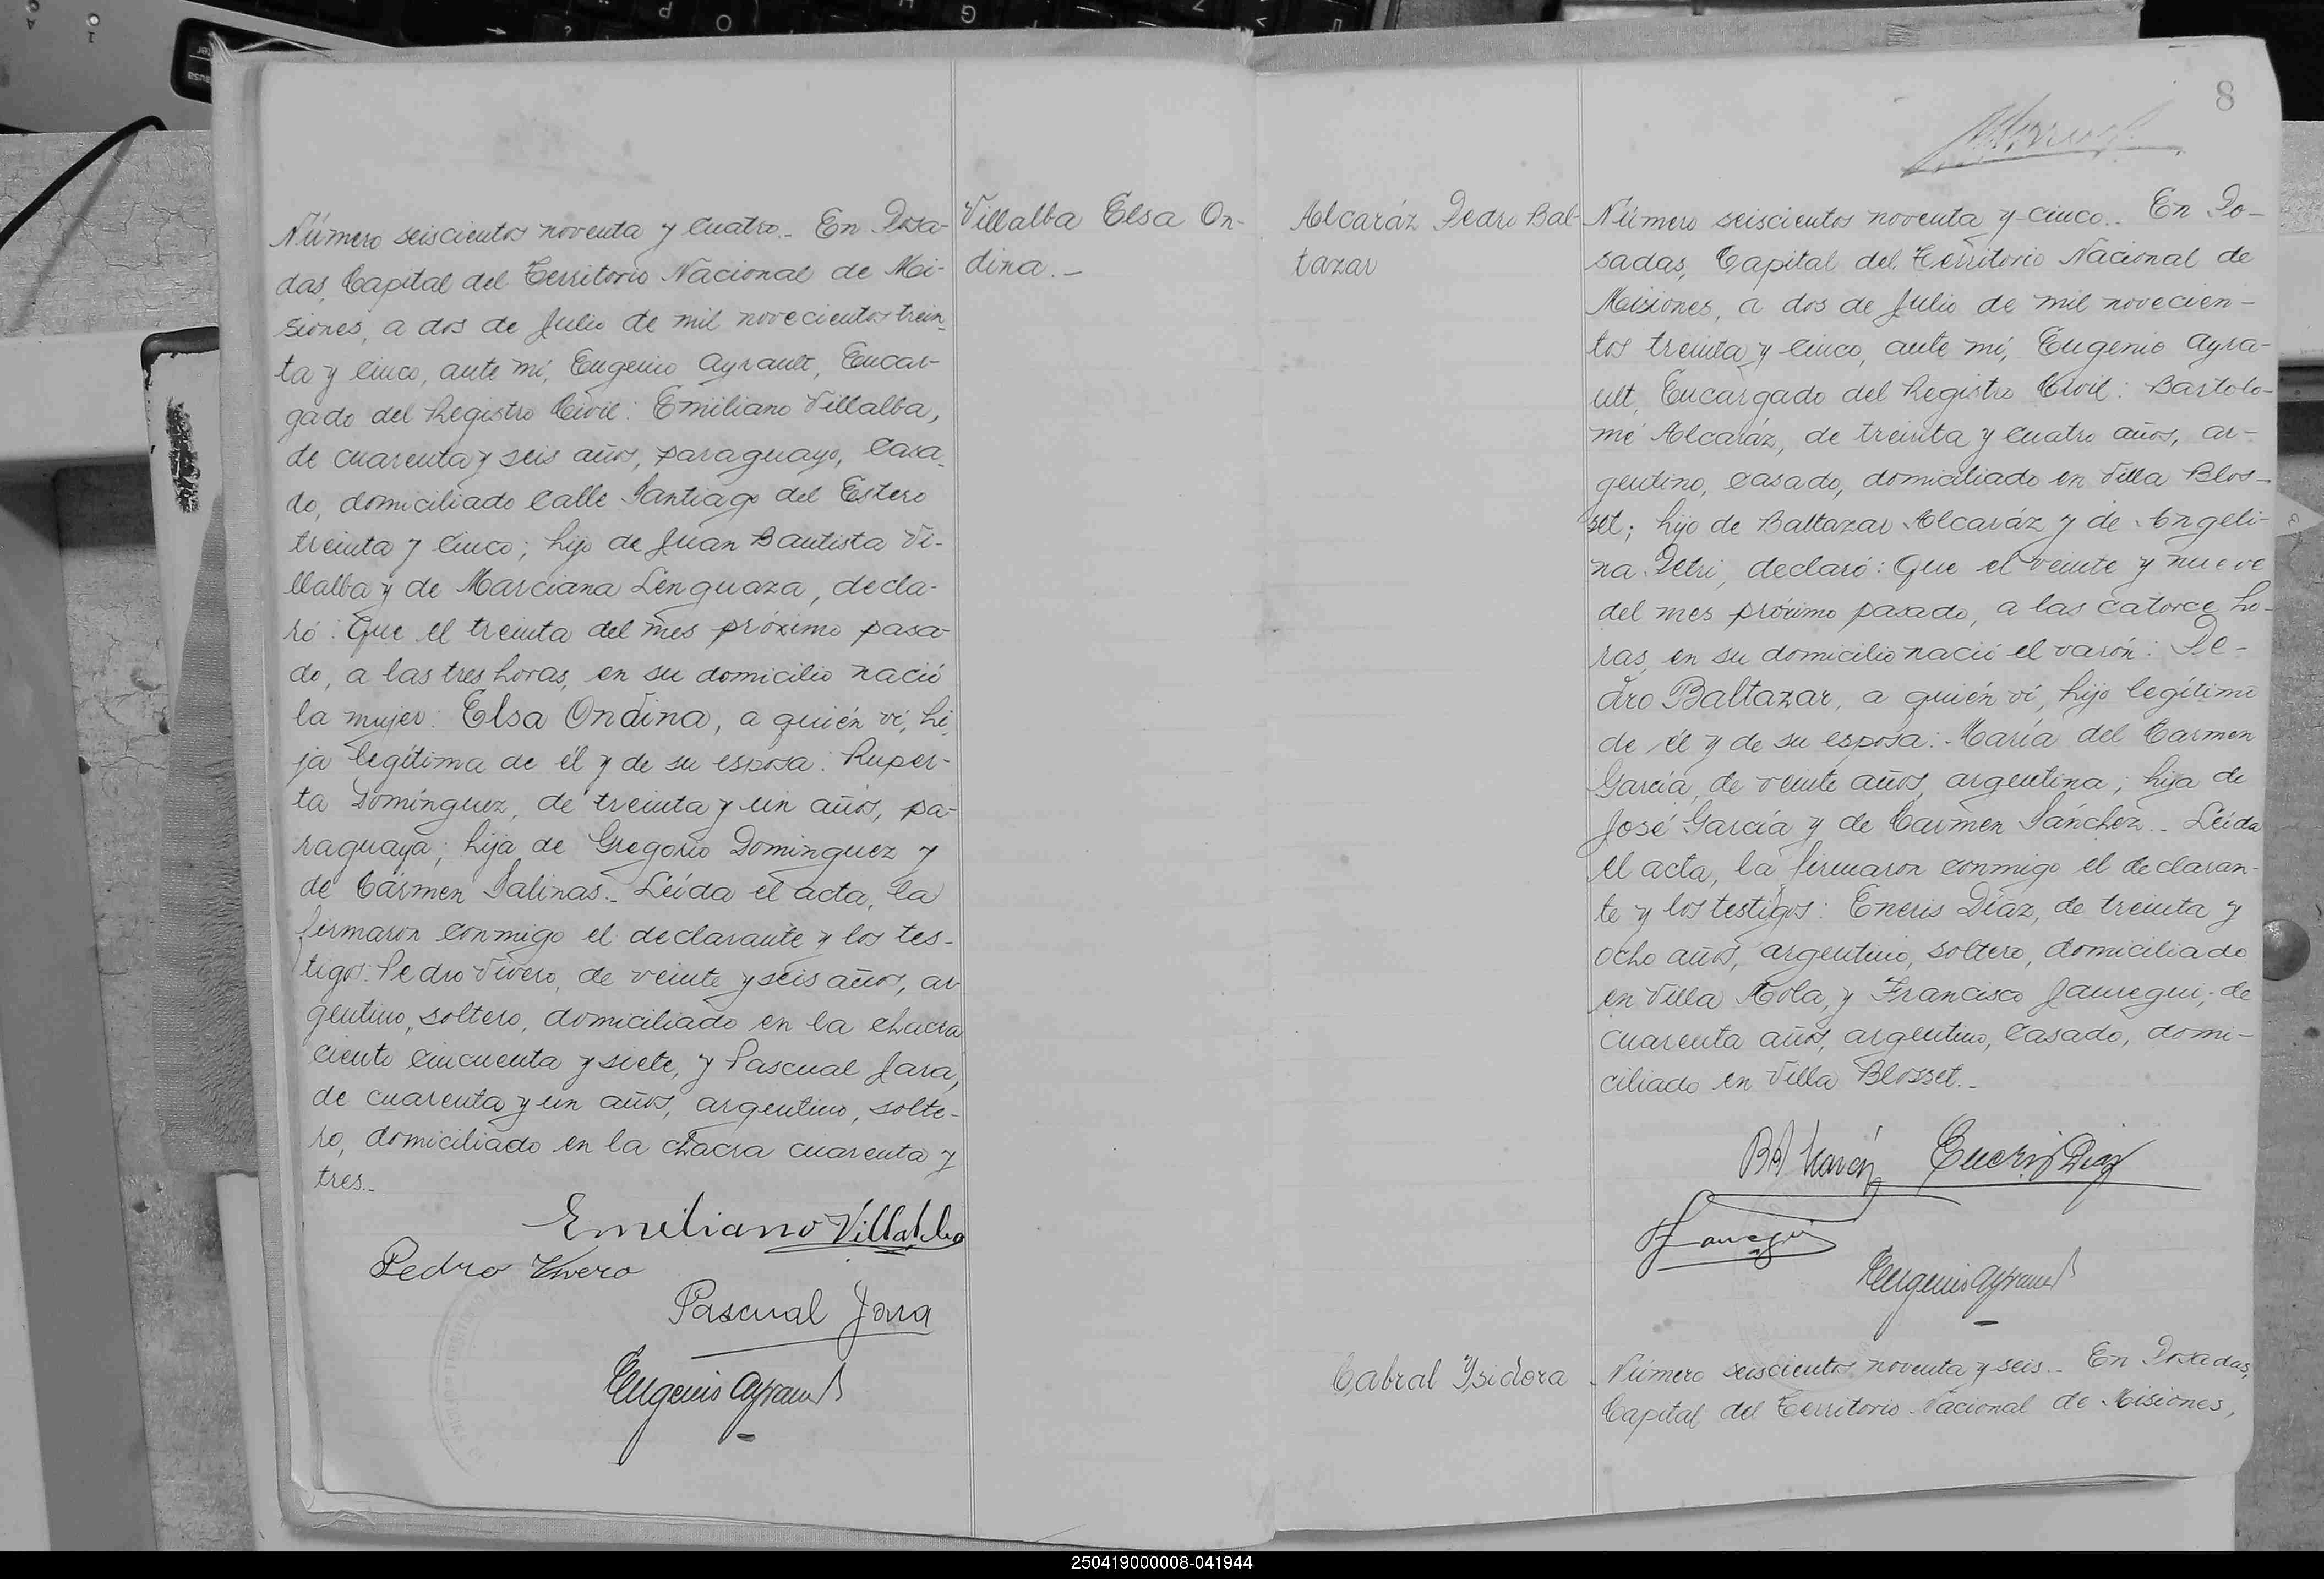 Número seiscientos noventa y cuatro.- En Posa-
das, Capital del Territorio Nacional de Mi-
siones, a dos de Julio de mil novecientos trein-
ta y cinco, ante mí, Eugenio Ayrault, Encar-
gado del Registro Civil: Emiliano Villalba,
de cuarenta y seis años, paraguayo, casa-
do, domiciliado calle Santiago del Estero
treinta y cinco; hijo de Juan Bautista Vi-
llalba y de Marciana Lenguaza, decla-
ró: Que el treinta del mes próximo pasa-
do, a las tres horas, en su domicilio nació
la mujer: Elsa Ondina, a quién ví, hi-
ja legítima de él y de su esposa: Ruper-
ta Domínguez, de treinta y un años, pa-
raguaya; hija de Gregorio Domínguez y
de Cármen Salinas.- Leída el acta, la
firmaron conmigo el declarante y los tes-
tigos: Pedro Vivero, de veinte y seis años, ar
gentino, soltero, domiciliado en la chacra
ciento cincuenta y siete, y Pascual Jara,
de cuarenta y un años, argentino, solte-
ro, domiciliado en la chacra cuarenta y
tres.-
Emiliano Villalba
Pedro Vivero
Pascual Jara
Eugenio Ayrault
Villalba Elsa On-
dina.-
8
Alcaráz Pedro Bal-
tazar
Número seiscientos noventa y cinco.- En Po-
sadas, Capital del Territorio Nacional de
Misiones, a dos de Julio de mil novecien-
tos treinta y cinco, ante mí, Eugenio Ayra-
ult, Encargado del Registro Civil: Bartolo-
mé Alcaráz, de treinta y cuatro años, ar-
gentino, casado, domiciliado en Villa Blos-
set; hijo de Baltazar Alcaráz y de Angeli-
na Petri, declaró: Que el veinte y nueve
del mes próximo pasado, a las catorce ho-
ras, en su domicilio nació el varón: Pe-
dro Baltazar, a quién ví, hijo legítimo
de él y de su esposa: María del Carmen
García, de veinte años, argentina; hija de
José García y de Carmen Sánchez.- Leída
el acta, la firmaron conmigo el declaran-
te y los testigos: Eneris Díaz, de treinta y
ocho años, argentino, soltero, domiciliado
en Villa Mola, y Francisco Jauregui, de
cuarenta años, argentino, casado, domi-
ciliado en Villa Blosset.-
B Alcaráz Eneris Diaz
F Jauregui
Eugenio Ayrault
Cabral Ysidora
Número seiscientos noventa y seis.- En Posadas,
Capital del Territorio Nacional de Misiones,
250419000008-041944